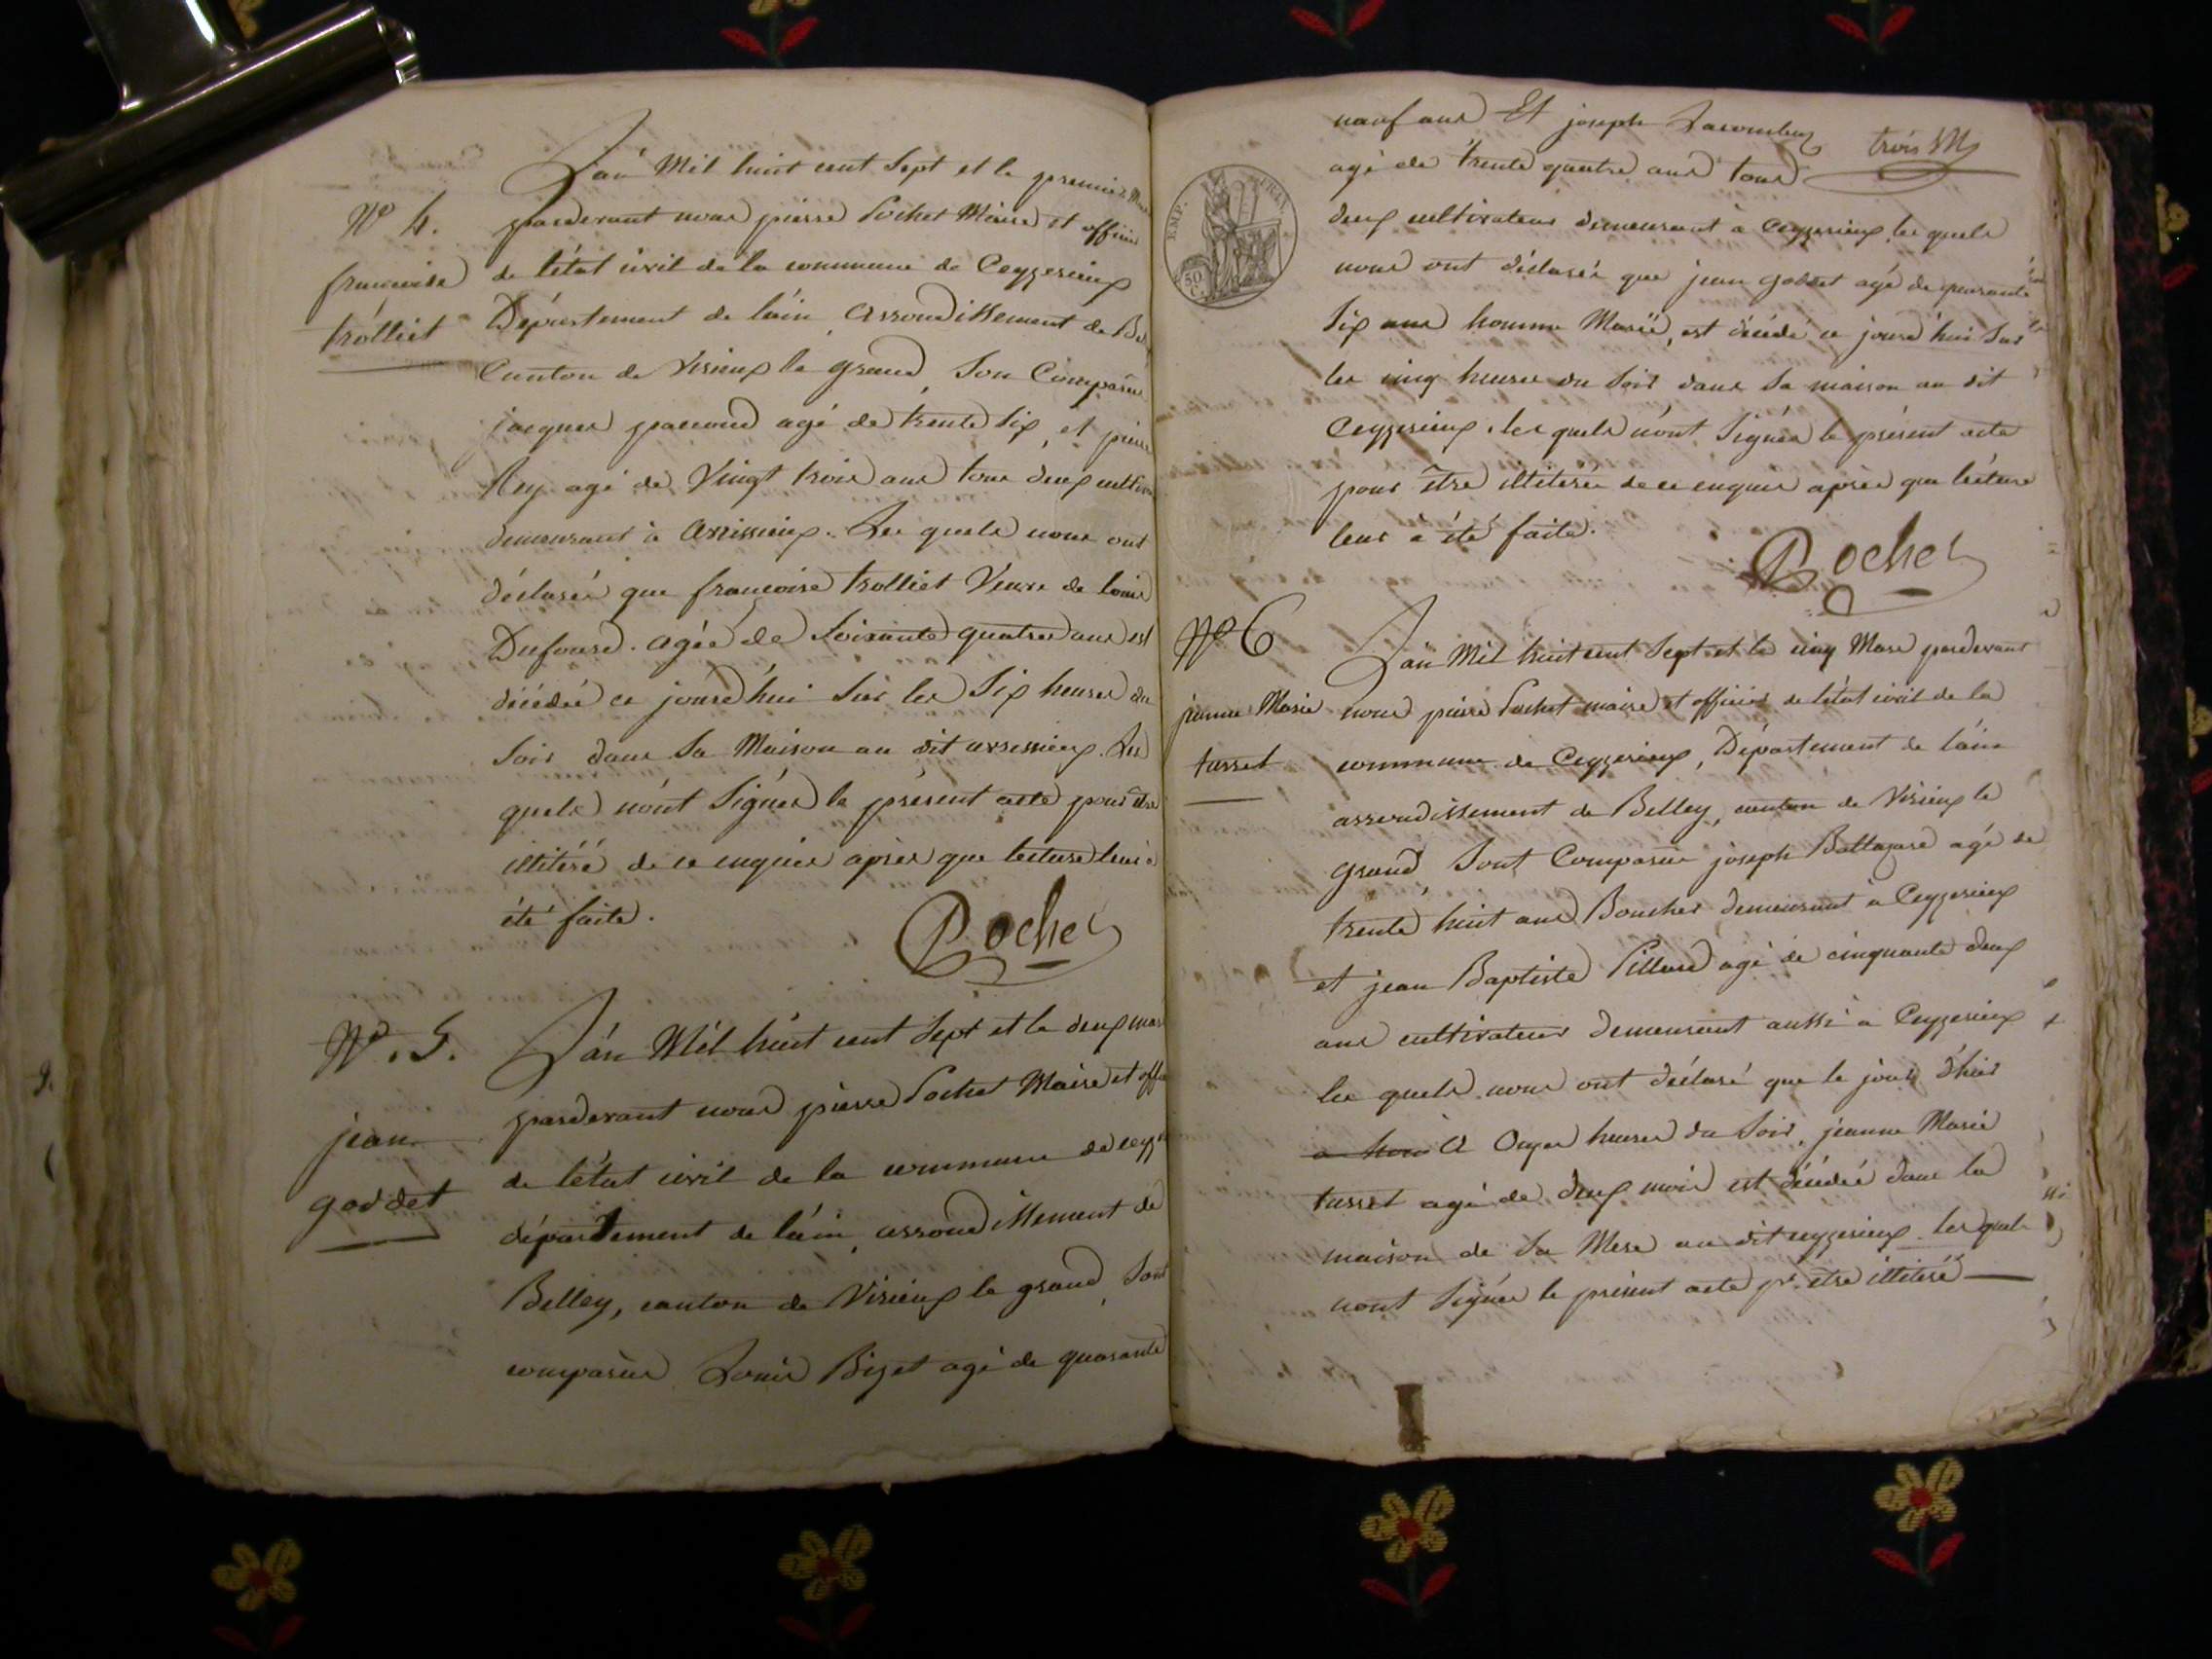 N° 4.
francoise
trolliet
L'an Mil huit cent Sept et le premier
pardevant nous pierre Pochet Maire et officier
de l'état civil de la commune de Ceyzerieux
Département de l'ain, arrondissement de
Canton de Virieux le grand, Son Comparu
jacques agé de trente Six, et pierre
Rey agé de Vingt trois ans tous deux
demeurant à . Les quels nous ont
déclarés que francoise trolliet Veuve de louis
Dufourd. agée de Soixante quatre ans est
décédée ce jourd'hui Sur les Six heures du
Soir dans Sa Maison au dit . Les
quels n'ont Signés le présent acte pour être
illitéré de ce enquis aprés que lecture leur à
été faite.
Pochet
N°. 5.
jean
goddet
L'an Mil huit cent Sept et le deux mars
pardevant nous pierre Pochet Maire et
de l'état civil de la commune de
département de l'ain, arrondissement de
Belley, canton de Virieux le grand, Sont
comparus Louis Bizet agé de quarante
neuf ans Et joseph
trois M
agé de trente quatre ans tous
deux cultivateurs demeurant à Ceyzerieux, les quels
nous ont déclarés que jean goddet agé de quarante
Six ans homme Marié, est décédé ce jourd'hui Sur
les cinq heures du Soir dans Sa maison au dit
Ceyzerieux. les quels n'ont Signés le présent acte
pour être illitérés de ce enquis aprés que lecture
leur à été faite.
Pochet
EMP. FRAN.
50 C.
N° 6
jeanne Marie
tasset
L'an Mil huit cent Sept et le cinq Mars pardevant
nous pierre Pochet maire et officier de l'état civil de la
commune de Ceyzerieux, Département de l'ain
arrondissement de Belley, canton de Virieux le
grand, Sont Comparus joseph Baltazard agé de
trente huit ans Boucher demeurant à Ceyzerieux
et jean Baptiste agé de cinquante deux
ans cultivateur demeurant aussi a Ceyzerieux
les quels nous ont déclaré que le jour d'hier
A Onze heures du Soir, jeanne Marie
tasset agé de deux mois est décédée dans la
maison de Sa Mere au dit ceyzerieux. les quels
n'ont Signés le présent acte pr. être illiteré